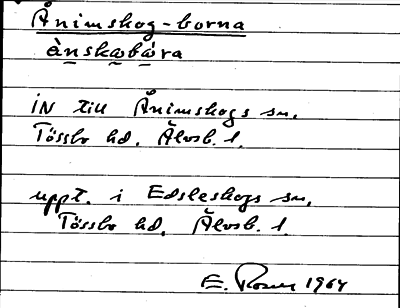 Ånimskog-borna
ànskabára
IN till Ånimskogs sn.
Tössbo hd. Älvsb. l.
uppt. i Edsleskogs sn.
Tössbo hd. Älvsb. l.
E. 1964